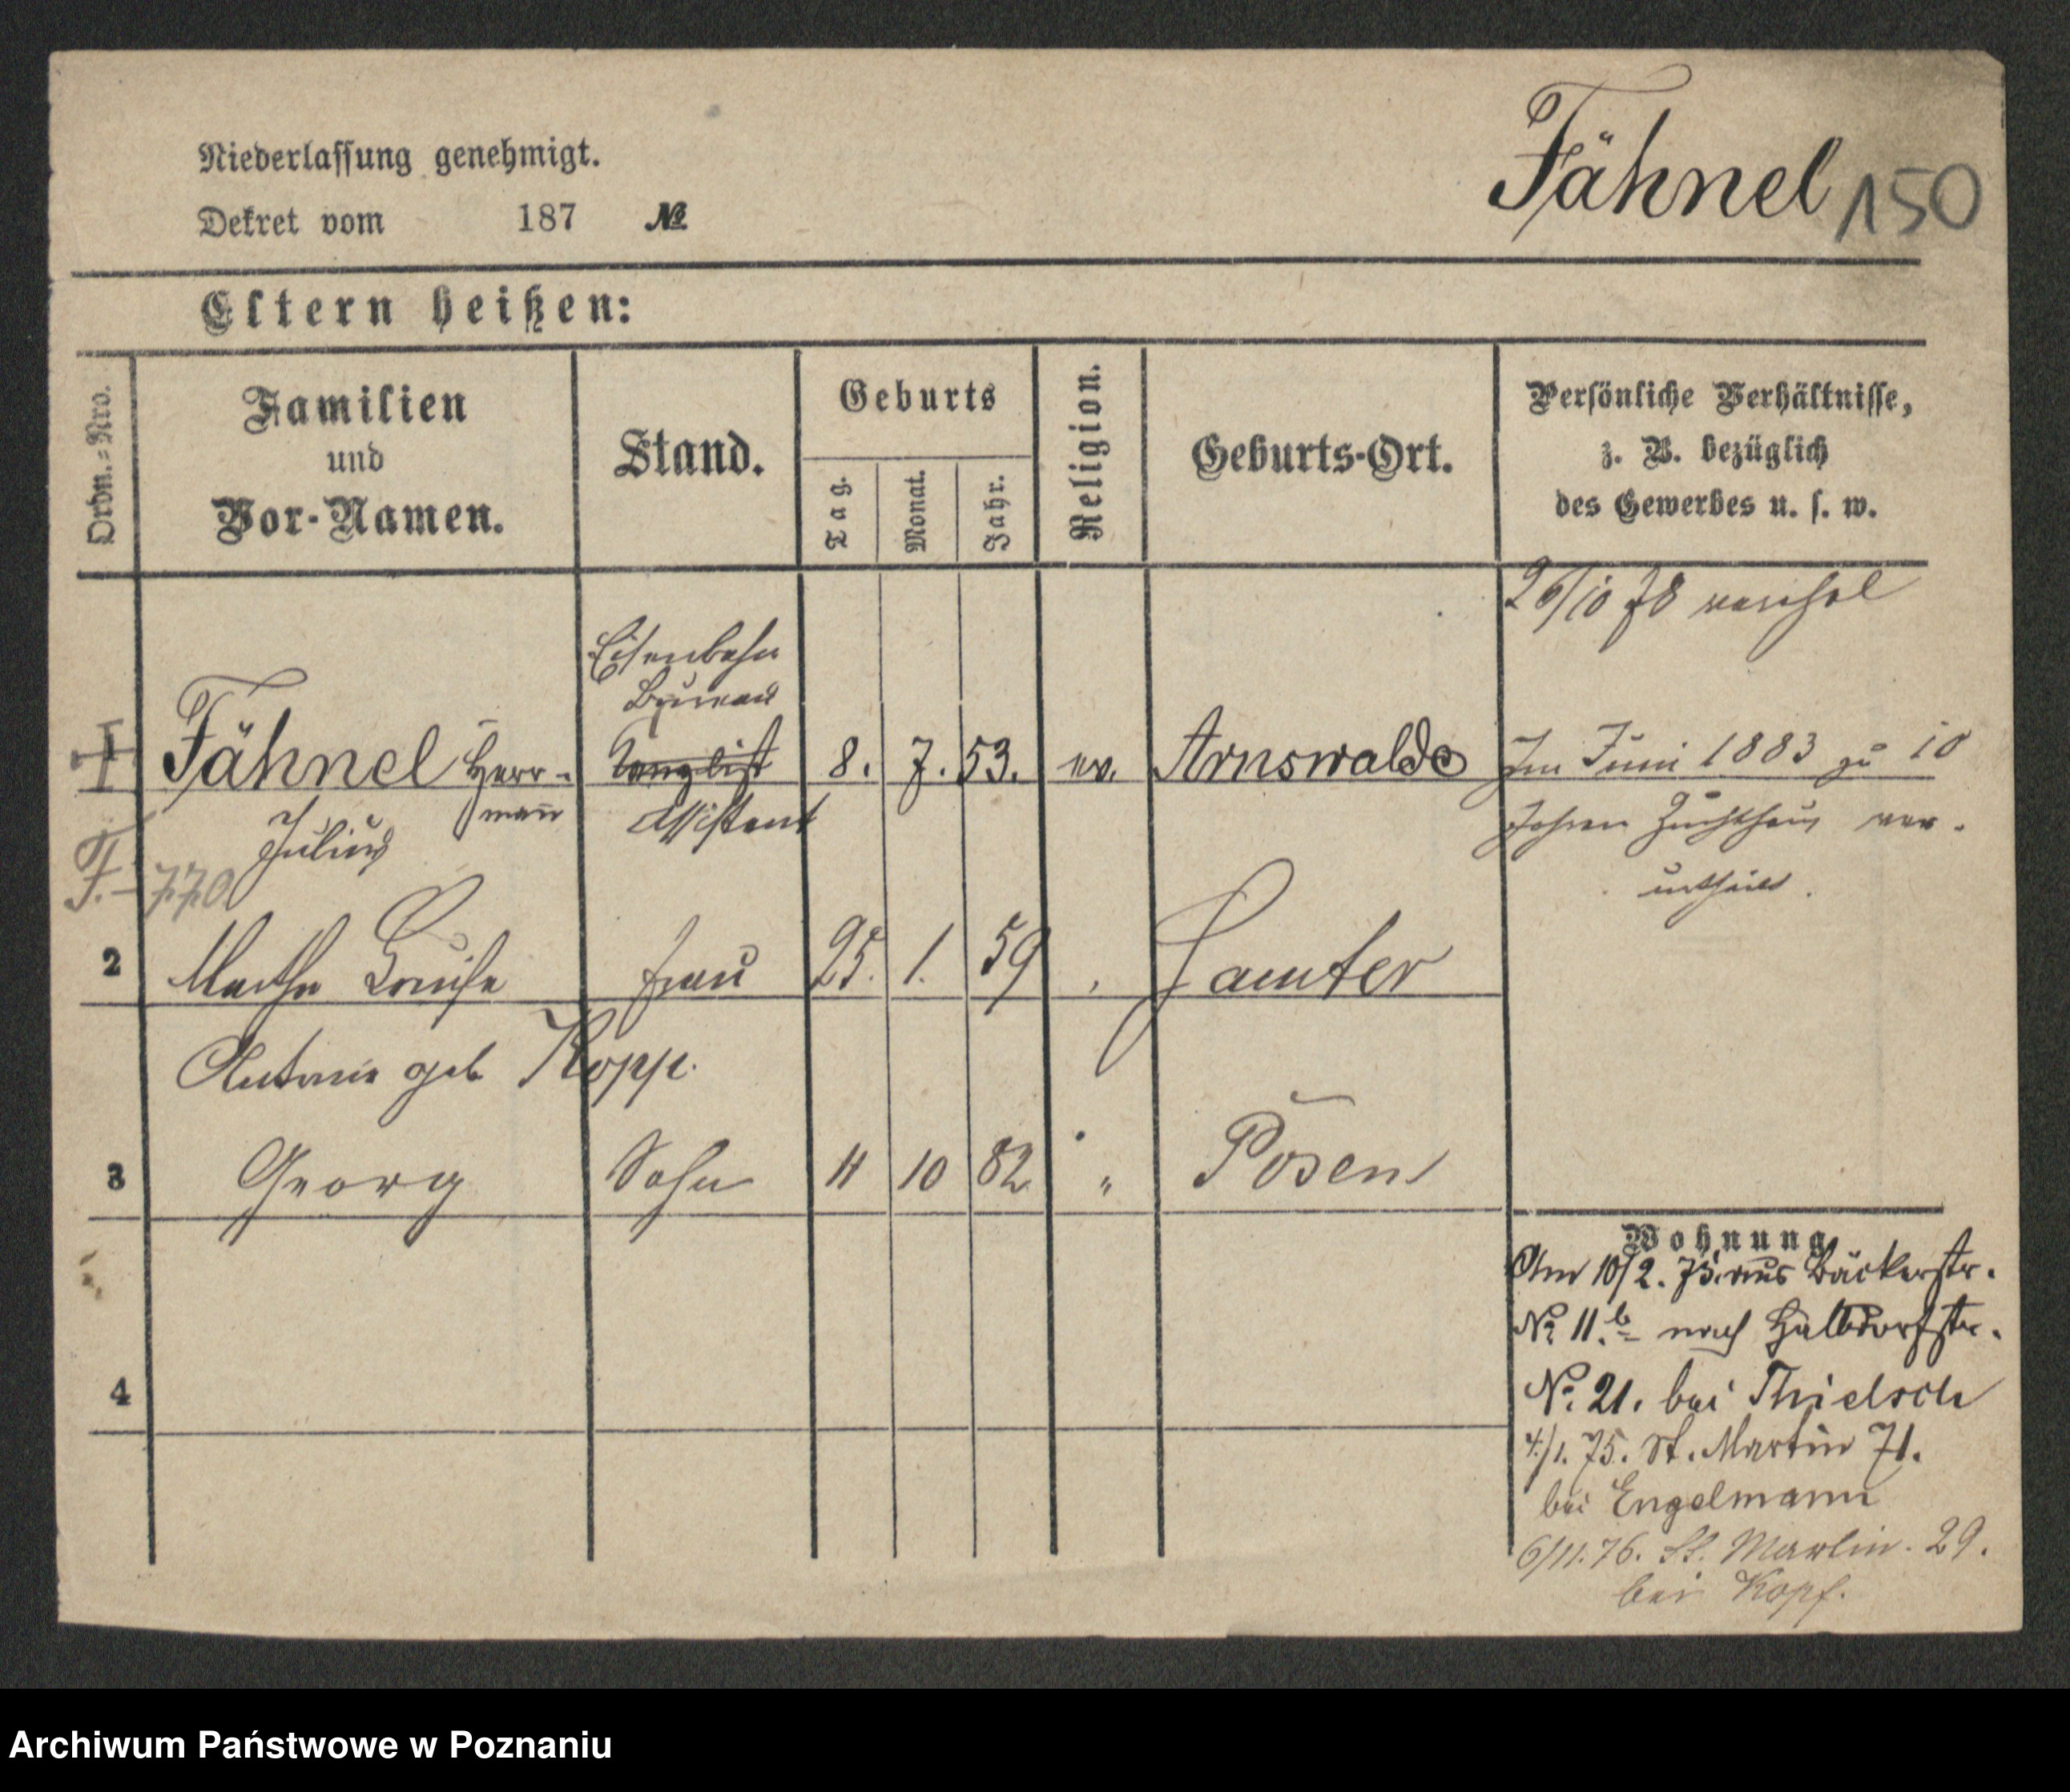 Niederlassung genehmigt.
Dekret vom 187 №
Fähnel 150
Eltern heißen:
Ordn.=Nro.
Familien
und
Vor-Namen.
Stand.
Geburts
Tag.
Monat.
Jahr.
Religion.
Geburts-Ort.
Persönliche Verhältnisse,
z. B. bezüglich
des Gewerbes u. s. w.
26/10 78 verehel
Eisenbahn
Bureau
1 Fähnel Herr- Canzlist 8. 7. 53. ev. Arnswalde Im Juni 1883 zu 10
mann
Julius Assistent Jahren Zuchthaus ver-
urtheilt.
F.- 770
2 Martha Louise Frau 25. 1. 59 Samter
Antonie geb Kopp.
3 Georg Sohn 11 10 82 " Posen
4
Wohnung
Am 10/2. 75. aus Bäckerstr.
No 11.b nach Halbdorfstr.
No. 21. bei Thielsch
4/1. 75. St. Martin 71.
bei Engelmann
6/11. 76. St. Martin. 29.
bei Kopf.
Archiwum Państwowe w Poznaniu